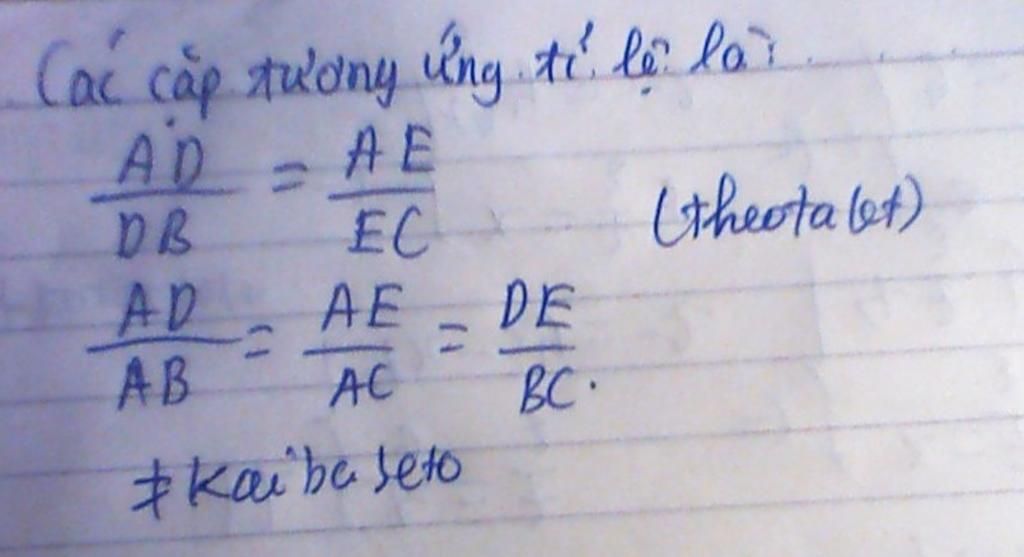 Các cặp tương ứng tỉ lệ là:
AD/DB = AE/EC (theo ta let)
AD/AB = AE/AC = DE/BC.
#Kaiba seto